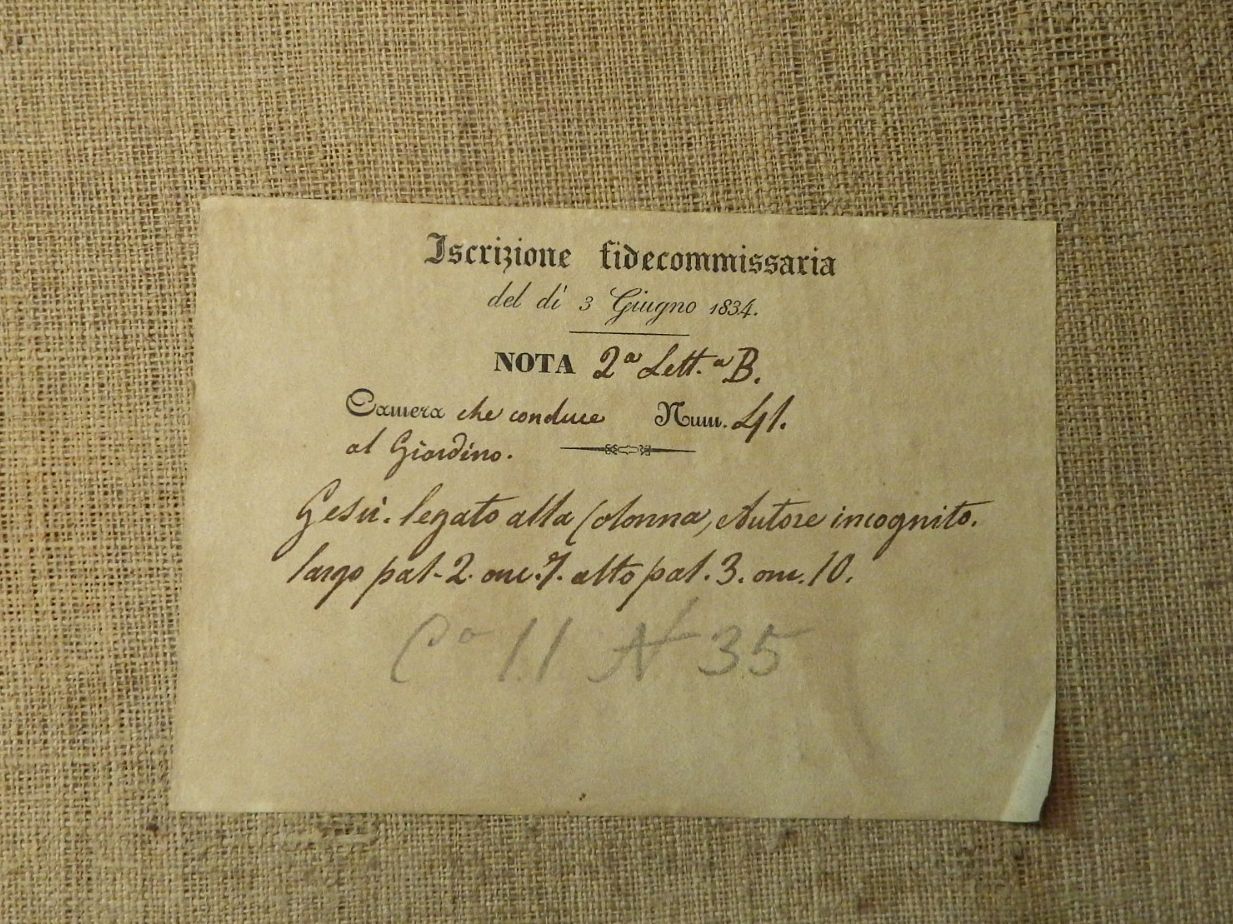 Iscrizione fidecommissaria
del dì 3 Giugno 1834.
NOTA 2ª Lett.ª B.
Camera che conduce Num. 41.
al Giardino.
Gesù. legato alla Colonna, Autore incognito.
largo pal. 2. onc. 7. alto pal. 3. onc. 10.
Cª 11 N 35